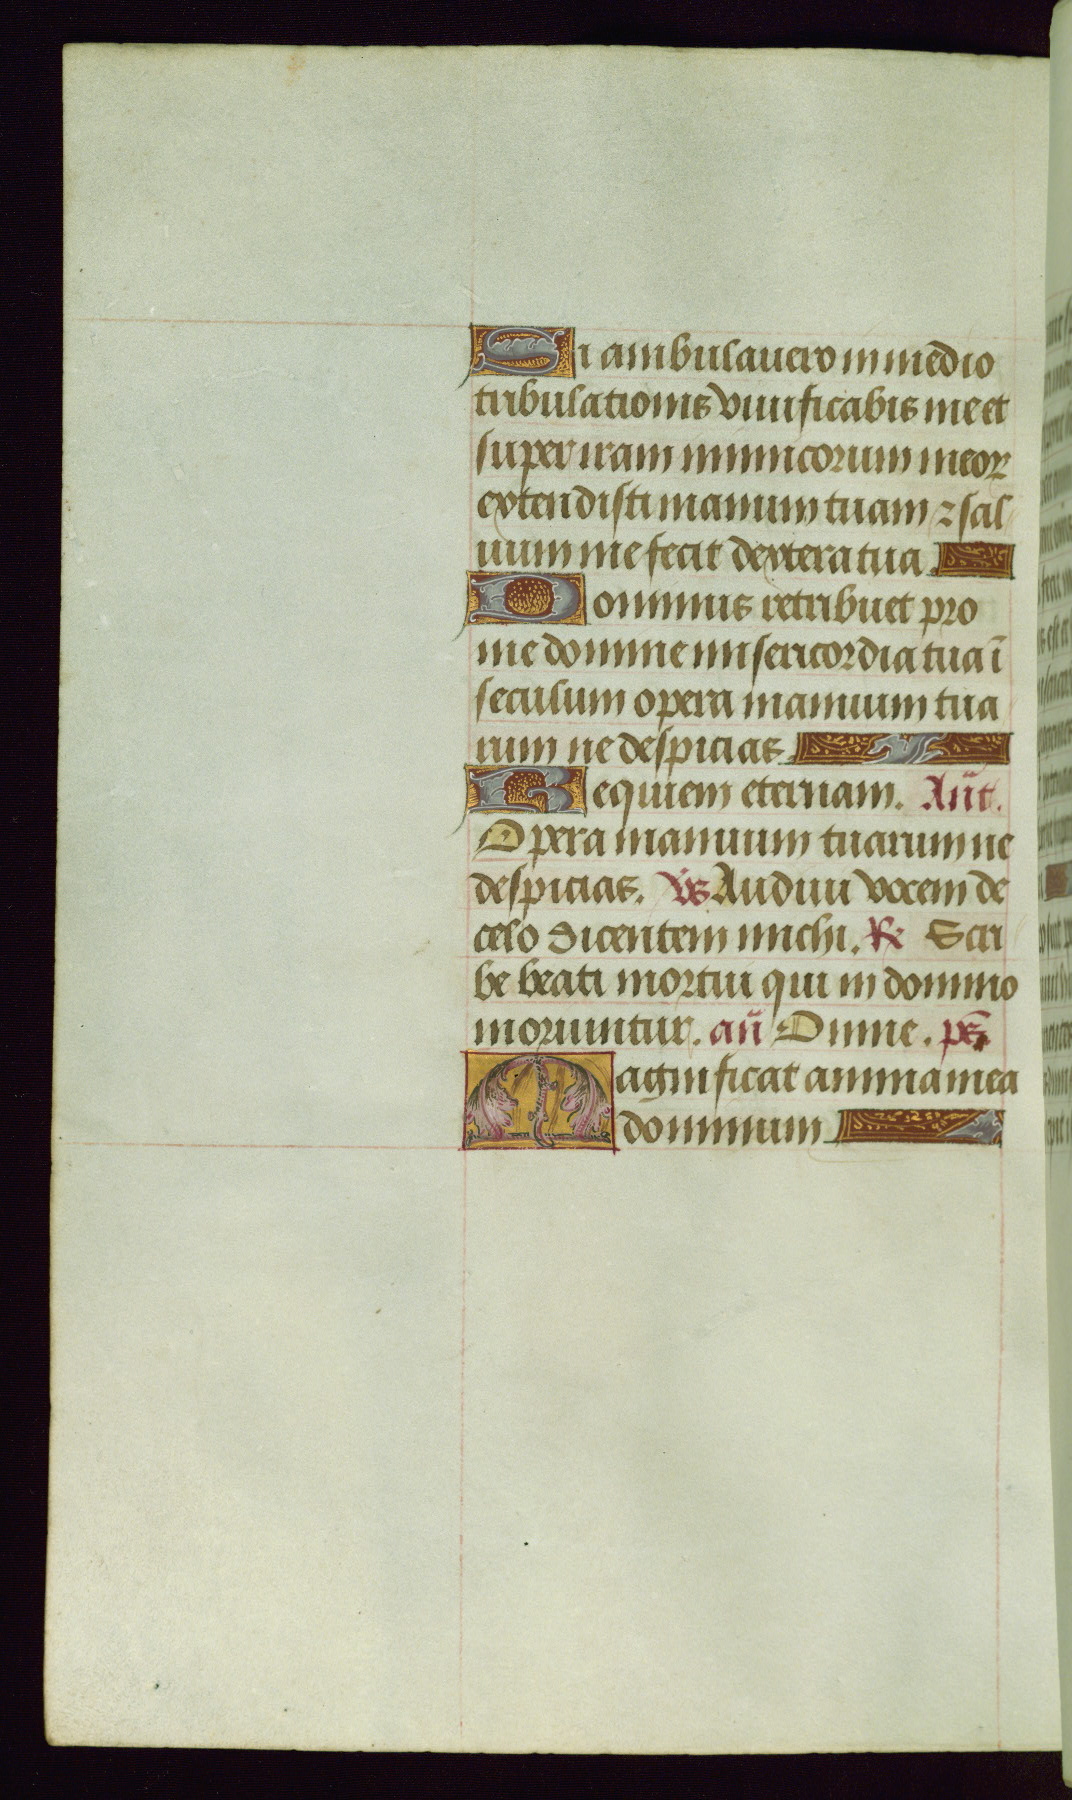 Si ambulauero in medio
tribulationis viuificabis me et
super iram inimicorum meoꝝ
extendisti manum tuam ⁊ sal
uum me fecit dextera tua.
Dominus retribuet pro
me domine misericordia tua ī
seculum opera manuum tua
rum ne despicias
Requiem eternam. Añt.
Opera manuum tuarum ne
despicias. V̓s Audiui vocem de
celo dicentem michi. R̷ Scri
be beati mortui qui in domino
moriuntur. añ Omne. ps̄
Magnificat anima mea
dominum